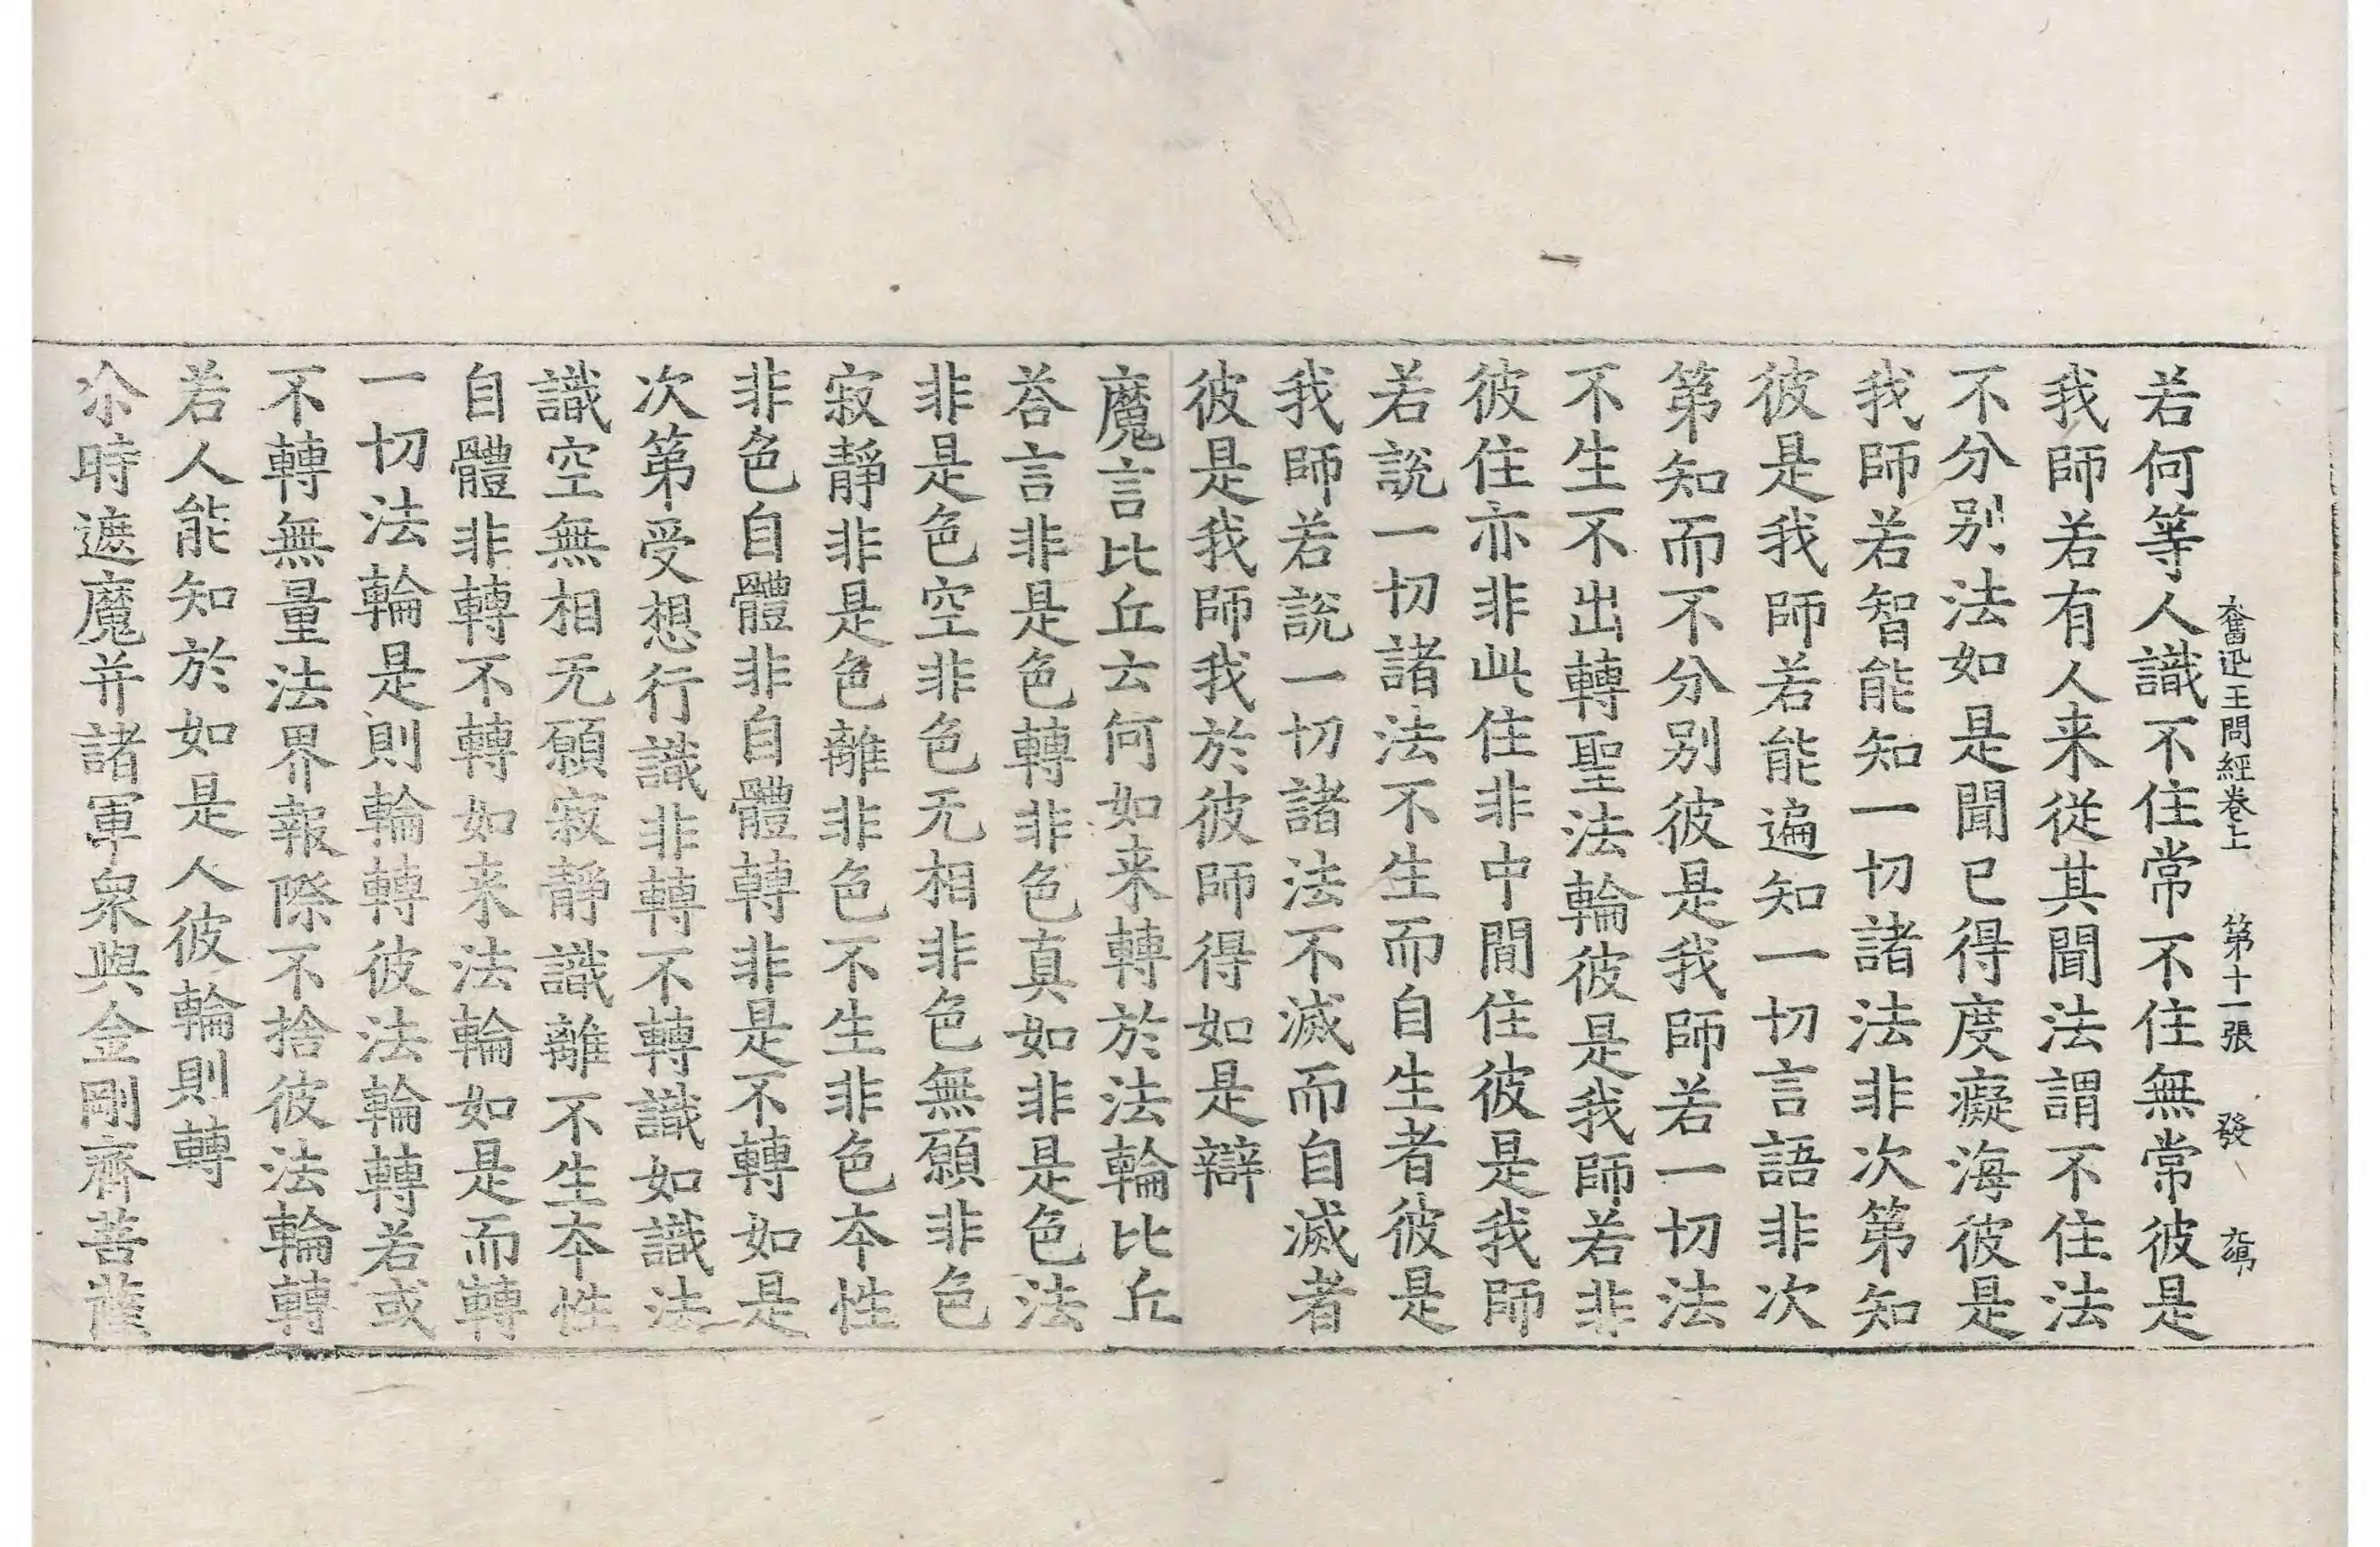 奮迅王問經卷上 第十一張 發
若何等人識不住常不住無常彼是
我師若有人来従其聞法謂不住法
不分别法如是聞已得度癡海彼是
我師若智能知一切諸法非次第知
彼是我師若能遍知一切言語非次
第知而不分别彼是我師若一切法
不生不出轉聖法輪彼是我師若非
彼住亦非此住非中間住彼是我師
若說一切諸法不生而自生者彼是
我師若說一切諸法不滅而自滅者
彼是我師我於彼師得如是辯
魔言比丘云何如来轉於法輪比丘
荅言非是色轉非色真如非是色法
非是色空非色无相非色無願非色
寂靜非是色離非色不生非色本性
非色自體非自體轉非是不轉如是
次第受想行識非轉不轉識如識法
識空無相无願寂靜識離不生本性
自體非轉不轉如来法輪如是而轉
一切法輪是則輪轉彼法輪轉若或
不轉無量法界報際不捨彼法輪轉
若人能知於如是人彼輪則轉
尒時遮魔并諸軍衆與金剛齊菩薩